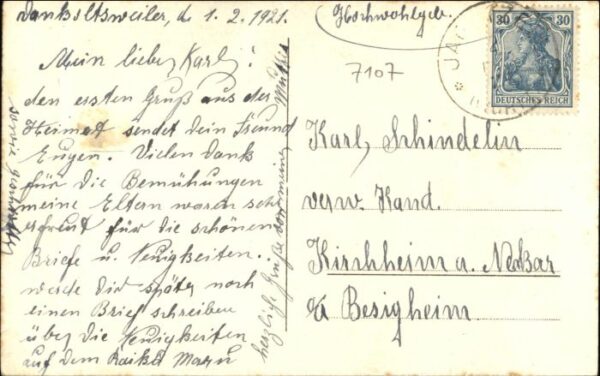 Dankoltsweiler, d. 1.2.1921.
Mein lieber Karl!
den ersten Gruß aus der
Heimat sendet dein Freund
Eugen. Vielen Dank
für die Bemühungen
meine Eltern waren sehr
erfreut für die schönen
Briefe u. Neuigkeiten.
werde dir später noch
einen Brief schreiben
über die Neuigkeiten
auf dem
herzliche Grüße von meinen
Hochwohlgeb.
7107
30 30
DEUTSCHES REICH
Karl Schindelin
verw. Kand.
Kirchheim a. Neckar
Besigheim